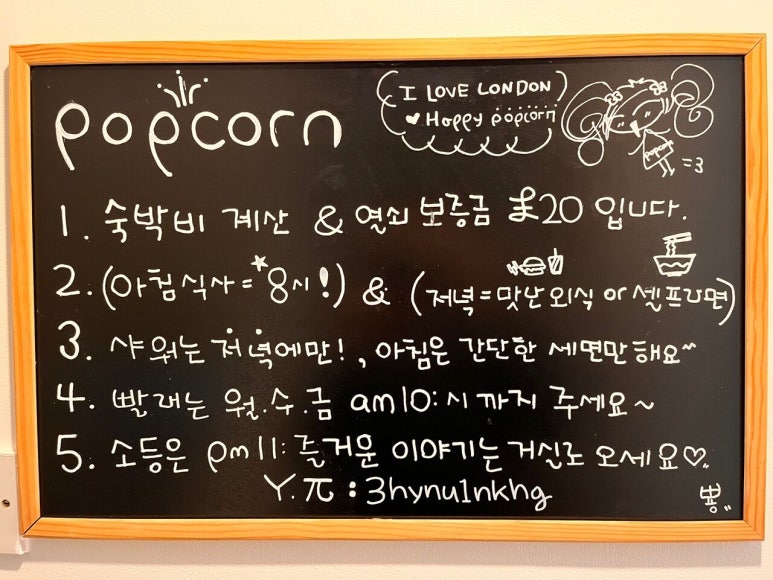 popcorn
I LOVE LONDON
♥ Happy popcorn
popcorn
=3
1. 숙박비 계산 & 열쇠 보증금 £20 입니다.
2. (아침식사 = *8시!) & (저녁 = 맛난 외식 or 셀프라면)
3. 샤워는 저녁에만!, 아침은 간단한 세면만 해요~
4. 빨래는 월.수.금 am10:시 까지 주세요~
5. 소등은 pm11: 즐거운 이야기는 거실로 오세요♡.
Y.π : 3hynu1nkhg
뿅"